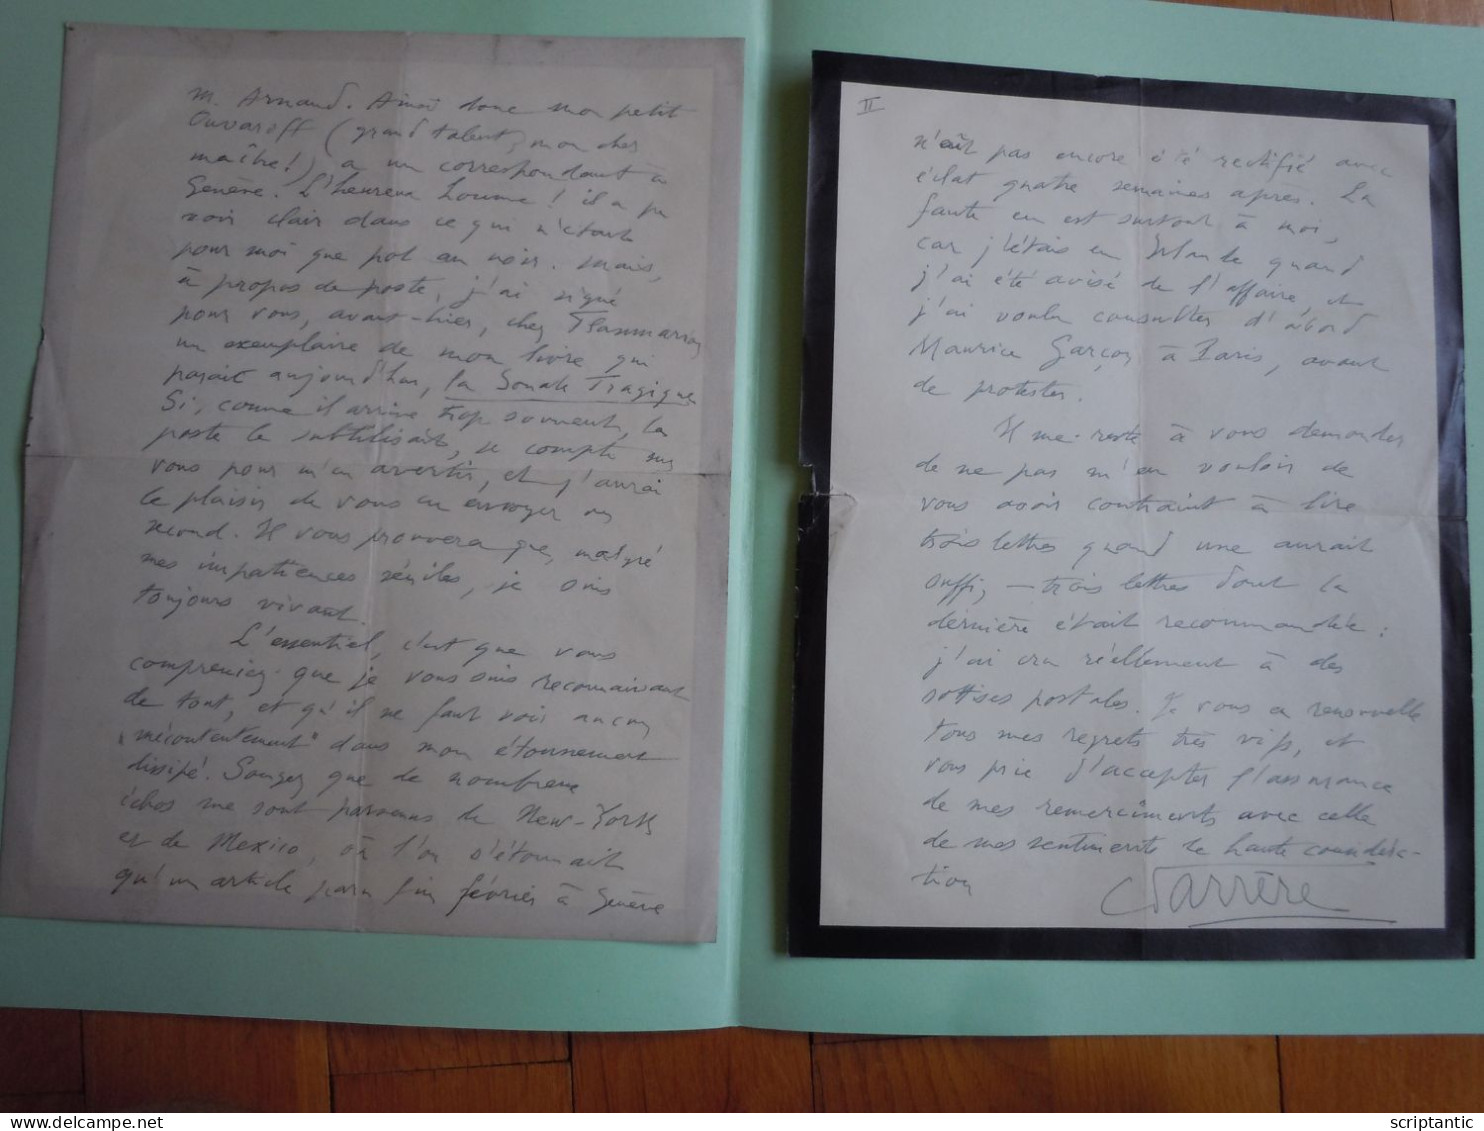 M. Arnaud. Ainsi donc mon petit
Ouvaroff (grand talent, mon cher
maître!) a un correspondant à
Genève. L'heureux homme! il a pu
voir clair dans ce qui n'était
pour moi que pot au noir. Mais,
à propos de poste, j'ai signé
pour vous, avant-hier, chez Flammarion
un exemplaire de mon livre qui
paraît aujourd'hui, la Sonate Tragique
Si, comme il arrive trop souvent, la
poste le subtilisait, je compte sur
vous pour m'en avertir, et j'aurai
le plaisir de vous en envoyer un
second. Il vous prouvera que, malgré
mes impatiences séniles, je suis
toujours vivant.
L'essentiel, c'est que vous
compreniez que je vous suis reconnaissant
de tout, et qu'il ne faut voir aucun
"mécontentement" dans mon étonnement
dissipé. Songez que de nombreux
échos me sont parvenus de New-York
et de Mexico, où l'on s'étonnait
qu'un article paru fin février à Genève
II
n'eût pas encore été rectifié avec
éclat quatre semaines après. La
faute en est surtout à moi,
car j'étais en Irlande quand
j'ai été avisé de l'affaire, et
j'ai voulu consulter d'abord
Maurice Garçon à Paris, avant
de protester.
Il me reste à vous demander
de ne pas m'en vouloir de
vous avoir contraint à lire
trois lettres quand une aurait
suffi, – trois lettres dont la
dernière était recommandée:
j'ai cru réellement à des
sottises postales. Je vous en renouvelle
tous mes regrets très vifs, et
vous prie d'accepter l'assurance
de mes remerciments avec celle
de mes sentiments de haute considéra-
tion
scriptantic